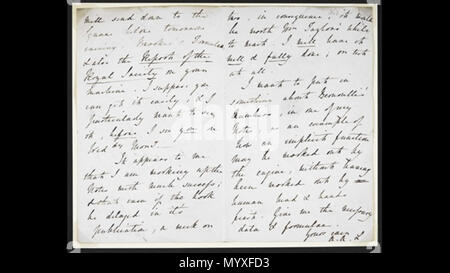 will send down to the
Square before tomorrow
evening. Brooks's Formulae,
& also the Report of the
Royal Society on your
machine. I suppose you
can get it easily, & I
particularly want to see
it, before I see you on
Wed^dy Morn^g.
It appears to me
that I am working up the
Notes with much success;
& that even if the book
be delayed in its
publication, a week or
two, in consequence, it would
be worth Mr Taylor's while
to wait. I will have it
well & fully done; or not
at all.
I want to put in
something about Bernoulli's
Numbers, in one of my
Notes, as an example of
how an implicit function
may be worked out by
the engine, without having
been worked out by
human head & hands
first. Give me the necessary
data & formulae.
Yours ever
A. A. L
alamy
Image ID: M9YXFD3
www.alamy.com